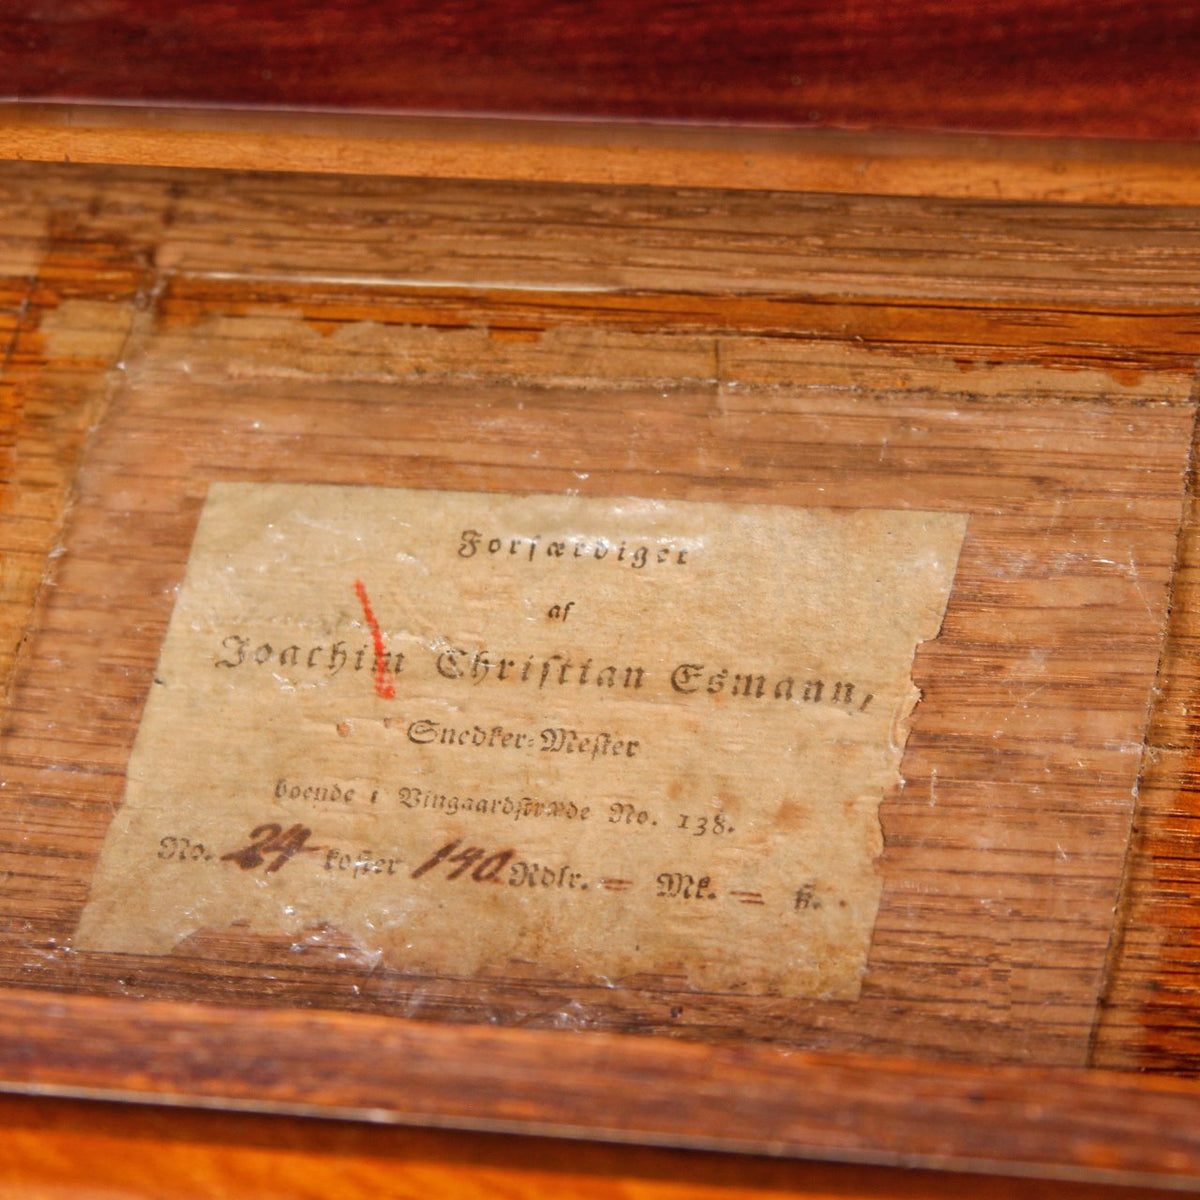 Forfærdiget
af
Joachim Chriſtian Esmann,
Snedker-Meſter
boende i Vingaardſtræde No. 138.
No. 24 koſter 140 Rdlr. = Mk. = ß.